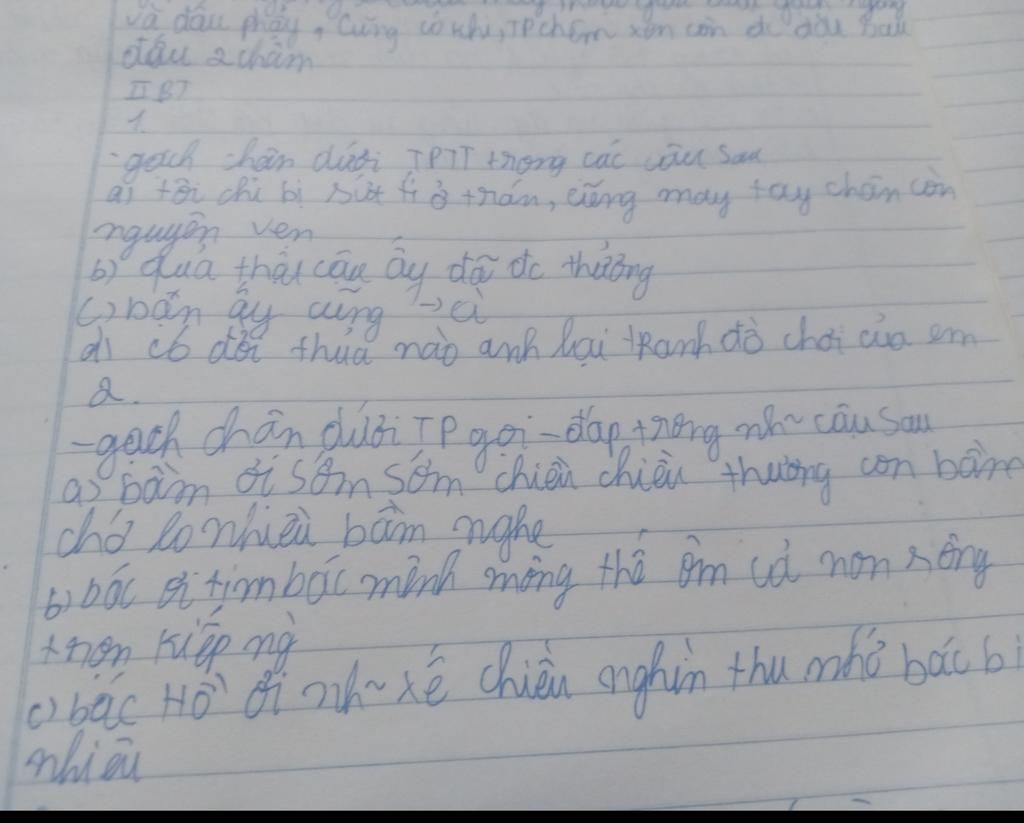 và dấu phẩy, cũng có khi, TP chêm xen còn đc đặt sau
dấu 2 chấm
II BT
1.
-gạch chân dưới TPTT trong các câu sau
a) tôi chỉ bị sứt tí ở trán, cũng may tay chân còn
nguyên vẹn
b) quả thật cậu ấy đã đc thưởng
c) bạn ấy cũng
d) có đời thủa nào anh lại tranh đồ chơi của em
2.
-gạch chân dưới TP gọi-đáp trong nh~ câu sau
a) bầm ơi sớm sớm chiều chiều thương con bầm
chớ lo nhiều bầm nghe
b) bác ơi tim bác mênh mông thế ôm cả non sông
trọn kiếp ng
c) bác Hồ ơi nh~ xế chiều nghìn thu nhớ bác bi
nhiêu